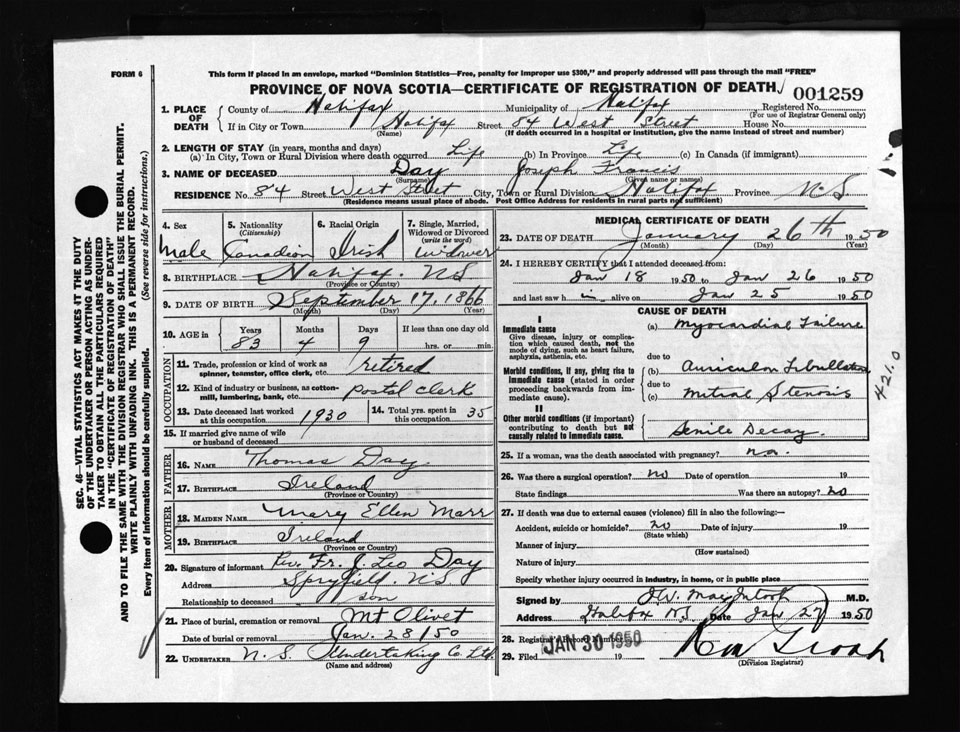 FORM 6
This form if placed in an envelope, marked "Dominion Statistics—Free, penalty for improper use $300," and properly addressed will pass through the mail "FREE"
PROVINCE OF NOVA SCOTIA—CERTIFICATE OF REGISTRATION OF DEATH
001259
SEC. 46—VITAL STATISTICS ACT MAKES IT THE DUTY
OF THE UNDERTAKER OR PERSON ACTING AS UNDER-
TAKER TO OBTAIN ALL THE PARTICULARS REQUIRED
IN THE "CERTIFICATE OF REGISTRATION OF DEATH"
AND TO FILE THE SAME WITH THE DIVISION REGISTRAR WHO SHALL ISSUE THE BURIAL PERMIT.
WRITE PLAINLY WITH UNFADING INK. THIS IS A PERMANENT RECORD.
Every item of information should be carefully supplied. (See reverse side for instructions.)
1. PLACE OF DEATH
County of Halifax Municipality of Halifax Registered No.
(For use of Registrar General only)
If in City or Town Halifax Street 84 West Street House No.
(Name) (If death occurred in a hospital or institution, give the name instead of street and number)
2. LENGTH OF STAY (in years, months and days)
(a) In City, Town or Rural Division where death occurred Life (b) In Province Life (c) In Canada (if immigrant)
3. NAME OF DECEASED Day Joseph Francis
(Surname) (Given name or names)
RESIDENCE No. 84 Street West Street City, Town or Rural Division Halifax Province N S
(Residence means usual place of abode. Post Office Address for residents in rural parts not sufficient)
4. Sex
Male
5. Nationality
(Citizenship)
Canadian
6. Racial Origin
Irish
7. Single, Married,
Widowed or Divorced
(write the word)
Widower
8. BIRTHPLACE Halifax. NS
(Province or Country)
9. DATE OF BIRTH September 17, 1866
(Month) (Day) (Year)
10. AGE in
Years Months Days If less than one day old
83 4 9 hrs. or min.
OCCUPATION
11. Trade, profession or kind of work as
spinner, teamster, office clerk, etc. retired
12. Kind of industry or business, as cotton-
mill, lumbering, bank, etc. postal clerk
13. Date deceased last worked
at this occupation 1930
14. Total yrs. spent in
this occupation 35
15. If married give name of wife
or husband of deceased
FATHER
16. NAME Thomas Day
17. BIRTHPLACE Ireland
(Province or Country)
MOTHER
18. MAIDEN NAME Mary Ellen Marr
19. BIRTHPLACE Ireland
(Province or Country)
20. Signature of informant Rev. Fr. J. Leo Day
Address Spryfield. NS
Relationship to deceased son
21. Place of burial, cremation or removal Mt Olivet
Date of burial or removal Jan. 28/50
22. UNDERTAKER N. S. Undertaking Co. Ltd.
(Name and address)
MEDICAL CERTIFICATE OF DEATH
23. DATE OF DEATH January 26th 1950
(Month) (Day) (Year)
24. I HEREBY CERTIFY that I attended deceased from:
Jan 18 1950 to Jan 26 1950
and last saw h im alive on Jan 25 1950
CAUSE OF DEATH
I
Immediate cause
Give disease, injury or complica-
tion which caused death, not the
mode of dying, such as heart failure,
asphyxia, asthenia, etc.
(a) Myocardial Failure
due to
Morbid conditions, if any, giving rise to
immediate cause (stated in order
proceeding backwards from im-
mediate cause).
(b) Auricular Fibrillation
due to
(c) Mitral Stenosis
421.0
II
Other morbid conditions (if important)
contributing to death but not
causally related to immediate cause.
Senile Decay.
25. If a woman, was the death associated with pregnancy? na.
26. Was there a surgical operation? no Date of operation 19
State findings Was there an autopsy? no
27. If death was due to external causes (violence) fill in also the following:—
Accident, suicide or homicide? no Date of injury 19
(State which)
Manner of injury
(How sustained)
Nature of injury
Specify whether injury occurred in industry, in home, or in public place
Signed by M.D.
Address Halifax N.S. Date Jan 27 1950
28. Registrar's Record Number
JAN 30 1950
29. Filed 19
(Division Registrar)